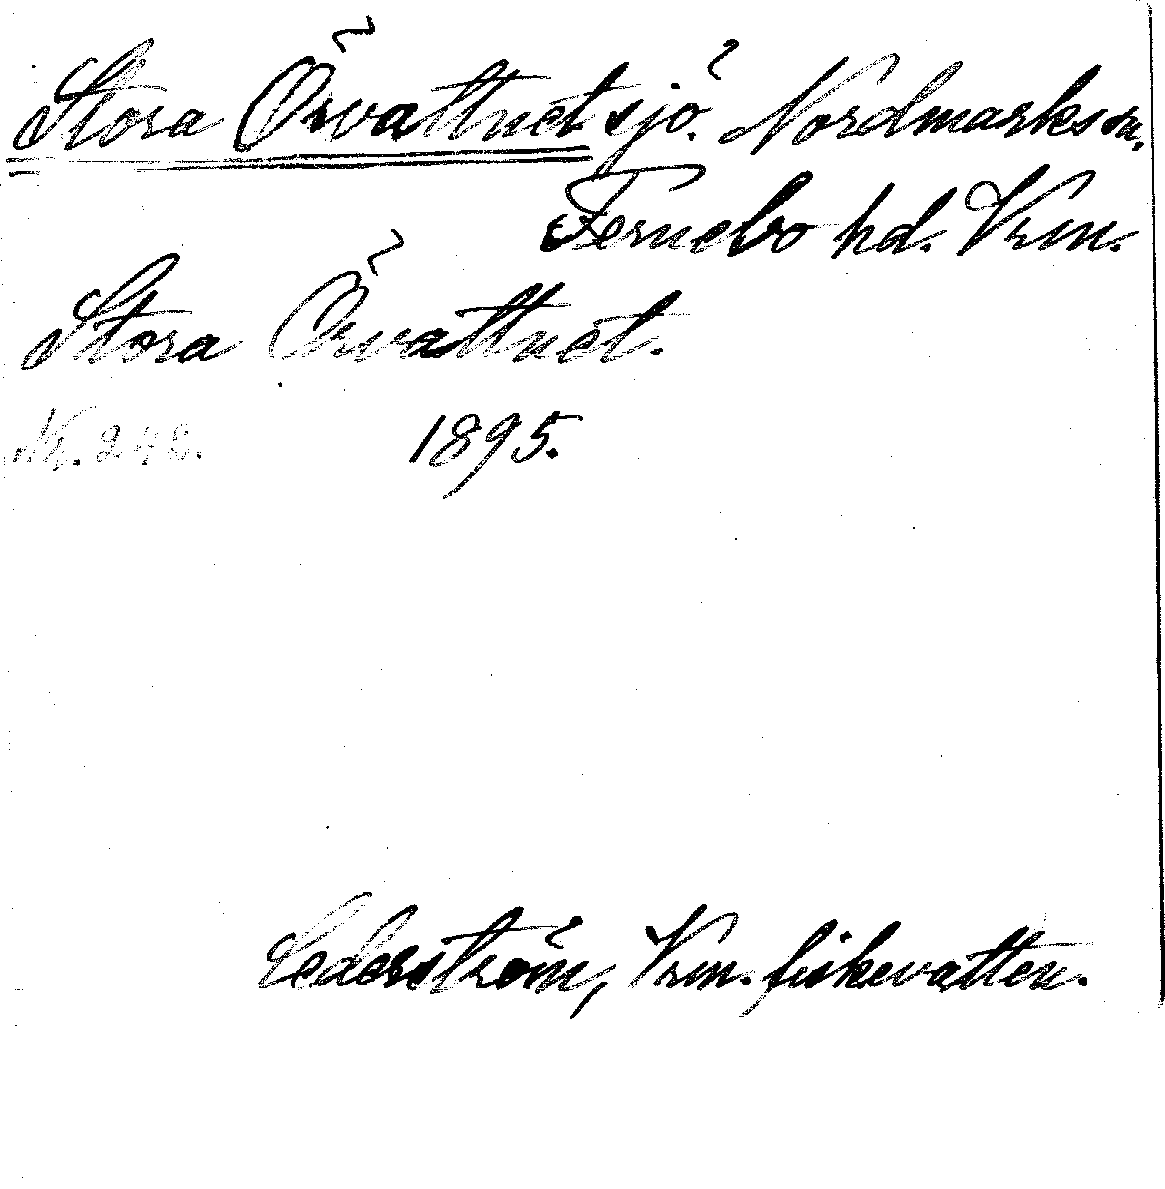 Stora Örvattnet sjö. Nordmarks sn,
Fernebo hd. Vrm.
Stora Örvattnet.
Nr. 248. 1895.
Cederström, Vrm. fiskevatten.